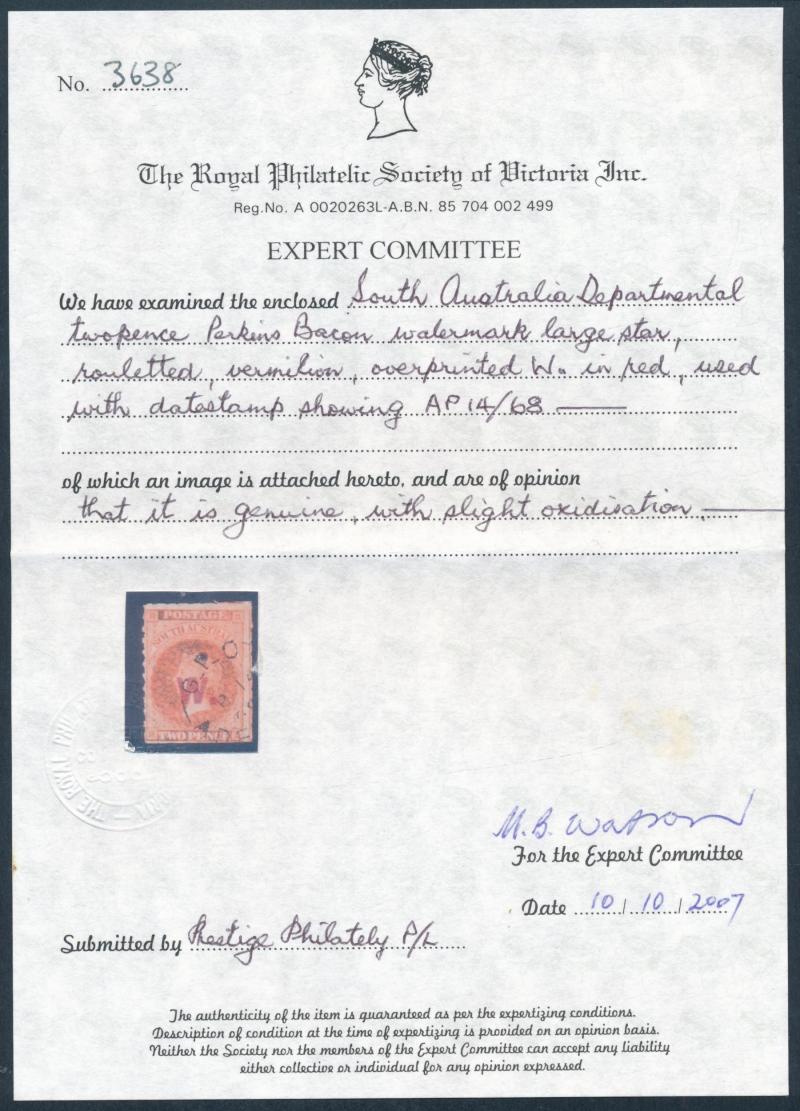 No. 3638
The Royal Philatelic Society of Victoria Inc.
Reg.No. A 0020263L-A.B.N. 85 704 002 499
EXPERT COMMITTEE
We have examined the enclosed South Australia Departmental
twopence Perkins Bacon watermark large star,
rouletted, vermilion, overprinted W. in red, used
with datestamp showing AP 14/68
of which an image is attached hereto, and are of opinion
that it is genuine, with slight oxidisation.
POSTAGE
SOUTH AUSTR
W.
TWO PENCE
THE ROYAL PHIL
M.B. Watson
For the Expert Committee
Date 10/10/2007
Submitted by Prestige Philately P/L
The authenticity of the item is guaranteed as per the expertizing conditions.
Description of condition at the time of expertizing is provided on an opinion basis.
Neither the Society nor the members of the Expert Committee can accept any liability
either collective or individual for any opinion expressed.